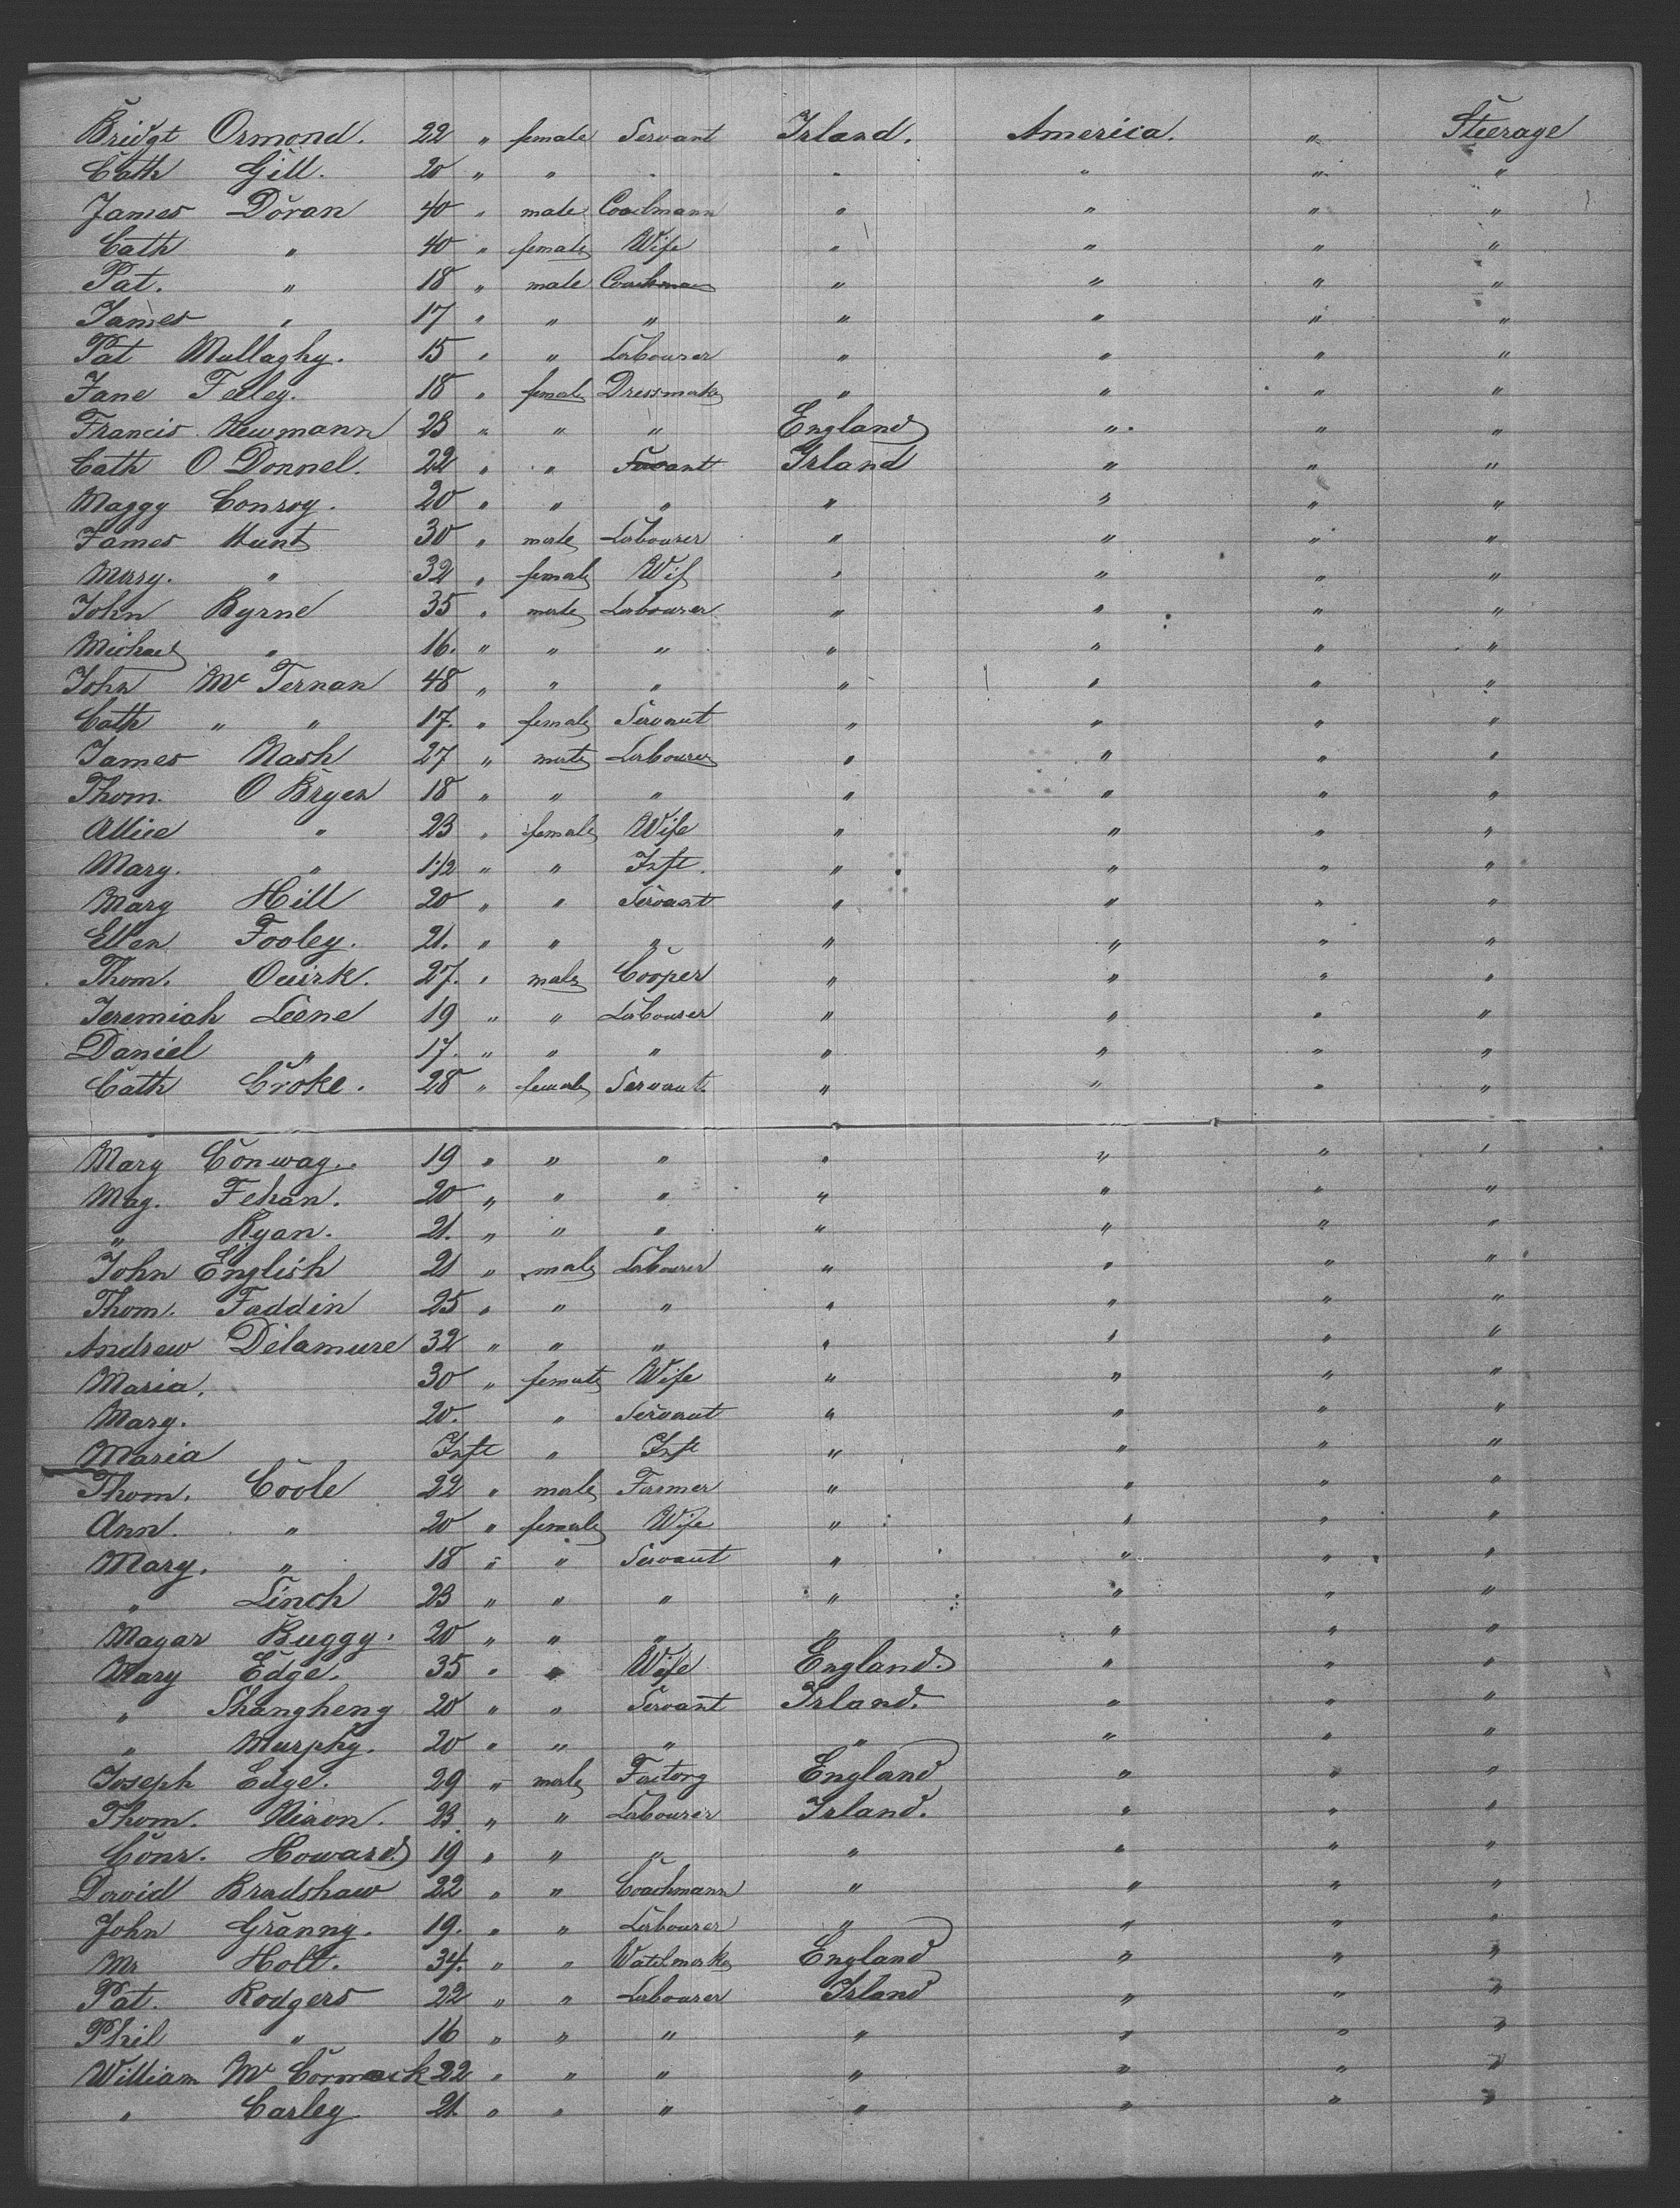 Bridgt Ormond. 22 " female Servant Irland. America. " Steerage
Cath Gill. 20 " " " " " " "
James Doran 40 " male Coachmann " " " "
Cath " 40 " female Wife " " " "
Pat. " 18 " male Coachman " " " "
James " 17 " " " " " " "
Pat Mullaghy. 15 " " Labourer " " " "
Jane Feeley. 18 " female Dressmaker " " " "
Francis Newmann 23 " " " England " " "
Cath O Donnel. 22 " " Servant Irland " " "
Maggy Conroy. 20 " " " " " " "
James Hunt 30 " male Labourer " " " "
Mary. " 32 " female Wif " " " "
John Byrne 35 " male Labourer " " " "
Michael " 16. " " " " " " "
John Mc Ternan 48 " " " " " " "
Cath " " 17. " female Servant " " " "
James Nash 27 " male Labourer " " " "
Thom. O Bryen 18 " " " " " " "
Allice " 23 " female Wife " " " "
Mary. " 1 1/2 " " Inft. " " " "
Mary Hill 20 " " Servant " " " "
Ellen Fooley. 21. " " " " " " "
Thom. Quirk. 27. " male Cooper " " " "
Jeremiah Leene 19 " " Labourer " " " "
Daniel " 17. " " " " " " "
Cath Croke. 28 " female Servant. " " " "
Mary Conway. 19 " " " " " " "
Mag. Fehan. 20 " " " " " " "
" Ryan. 21. " " " " " " "
John English 21 " male Labourer " " " "
Thom. Faddin 25 " " " " " " "
Andrew Delamure 32 " " " " " " "
Maria. 30 " female Wife " " " "
Mary. 20. " Servant " " " "
Maria Inft " Inft " " " "
Thom. Coole 22 " male Farmer " " " "
Ann. " 20 " female Wife " " " "
Mary. " 18 " " Servant " " " "
" Linch 23 " " " " " " "
Magar Buggy. 20 " " " " " " "
Mary Edge. 35 " " Wife England. " " "
" Shangheny 20 " " Servant Irland. " " "
" Murphy. 20 " " " " " " "
Joseph Edge. 29 " male Factory England " " "
Thom. Nixon. 23. " " Labourer Irland. " " "
Conr. Howard 19 " " " " " " "
David Bradshaw 22 " " Coachmann " " " "
John Granny. 19. " " Labourer " " " "
Mr Holt. 34. " " Watchmaker England " " "
Pat. Rodgers 22 " " Labourer Irland " " "
Phil " 16 " " " " " " "
William Mc Cormack 22 " " " " " " "
" Carley 21. " " " " " " "